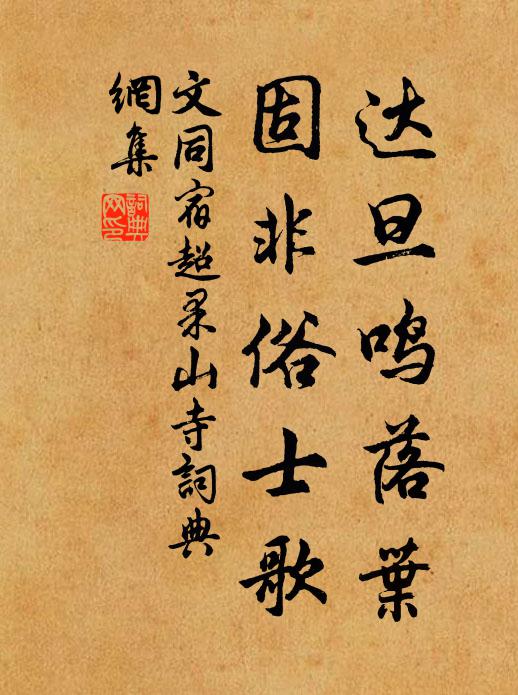 达旦鸣落葉
固非俗士歌
文同宿超果山寺詞典
網集
詞典网印